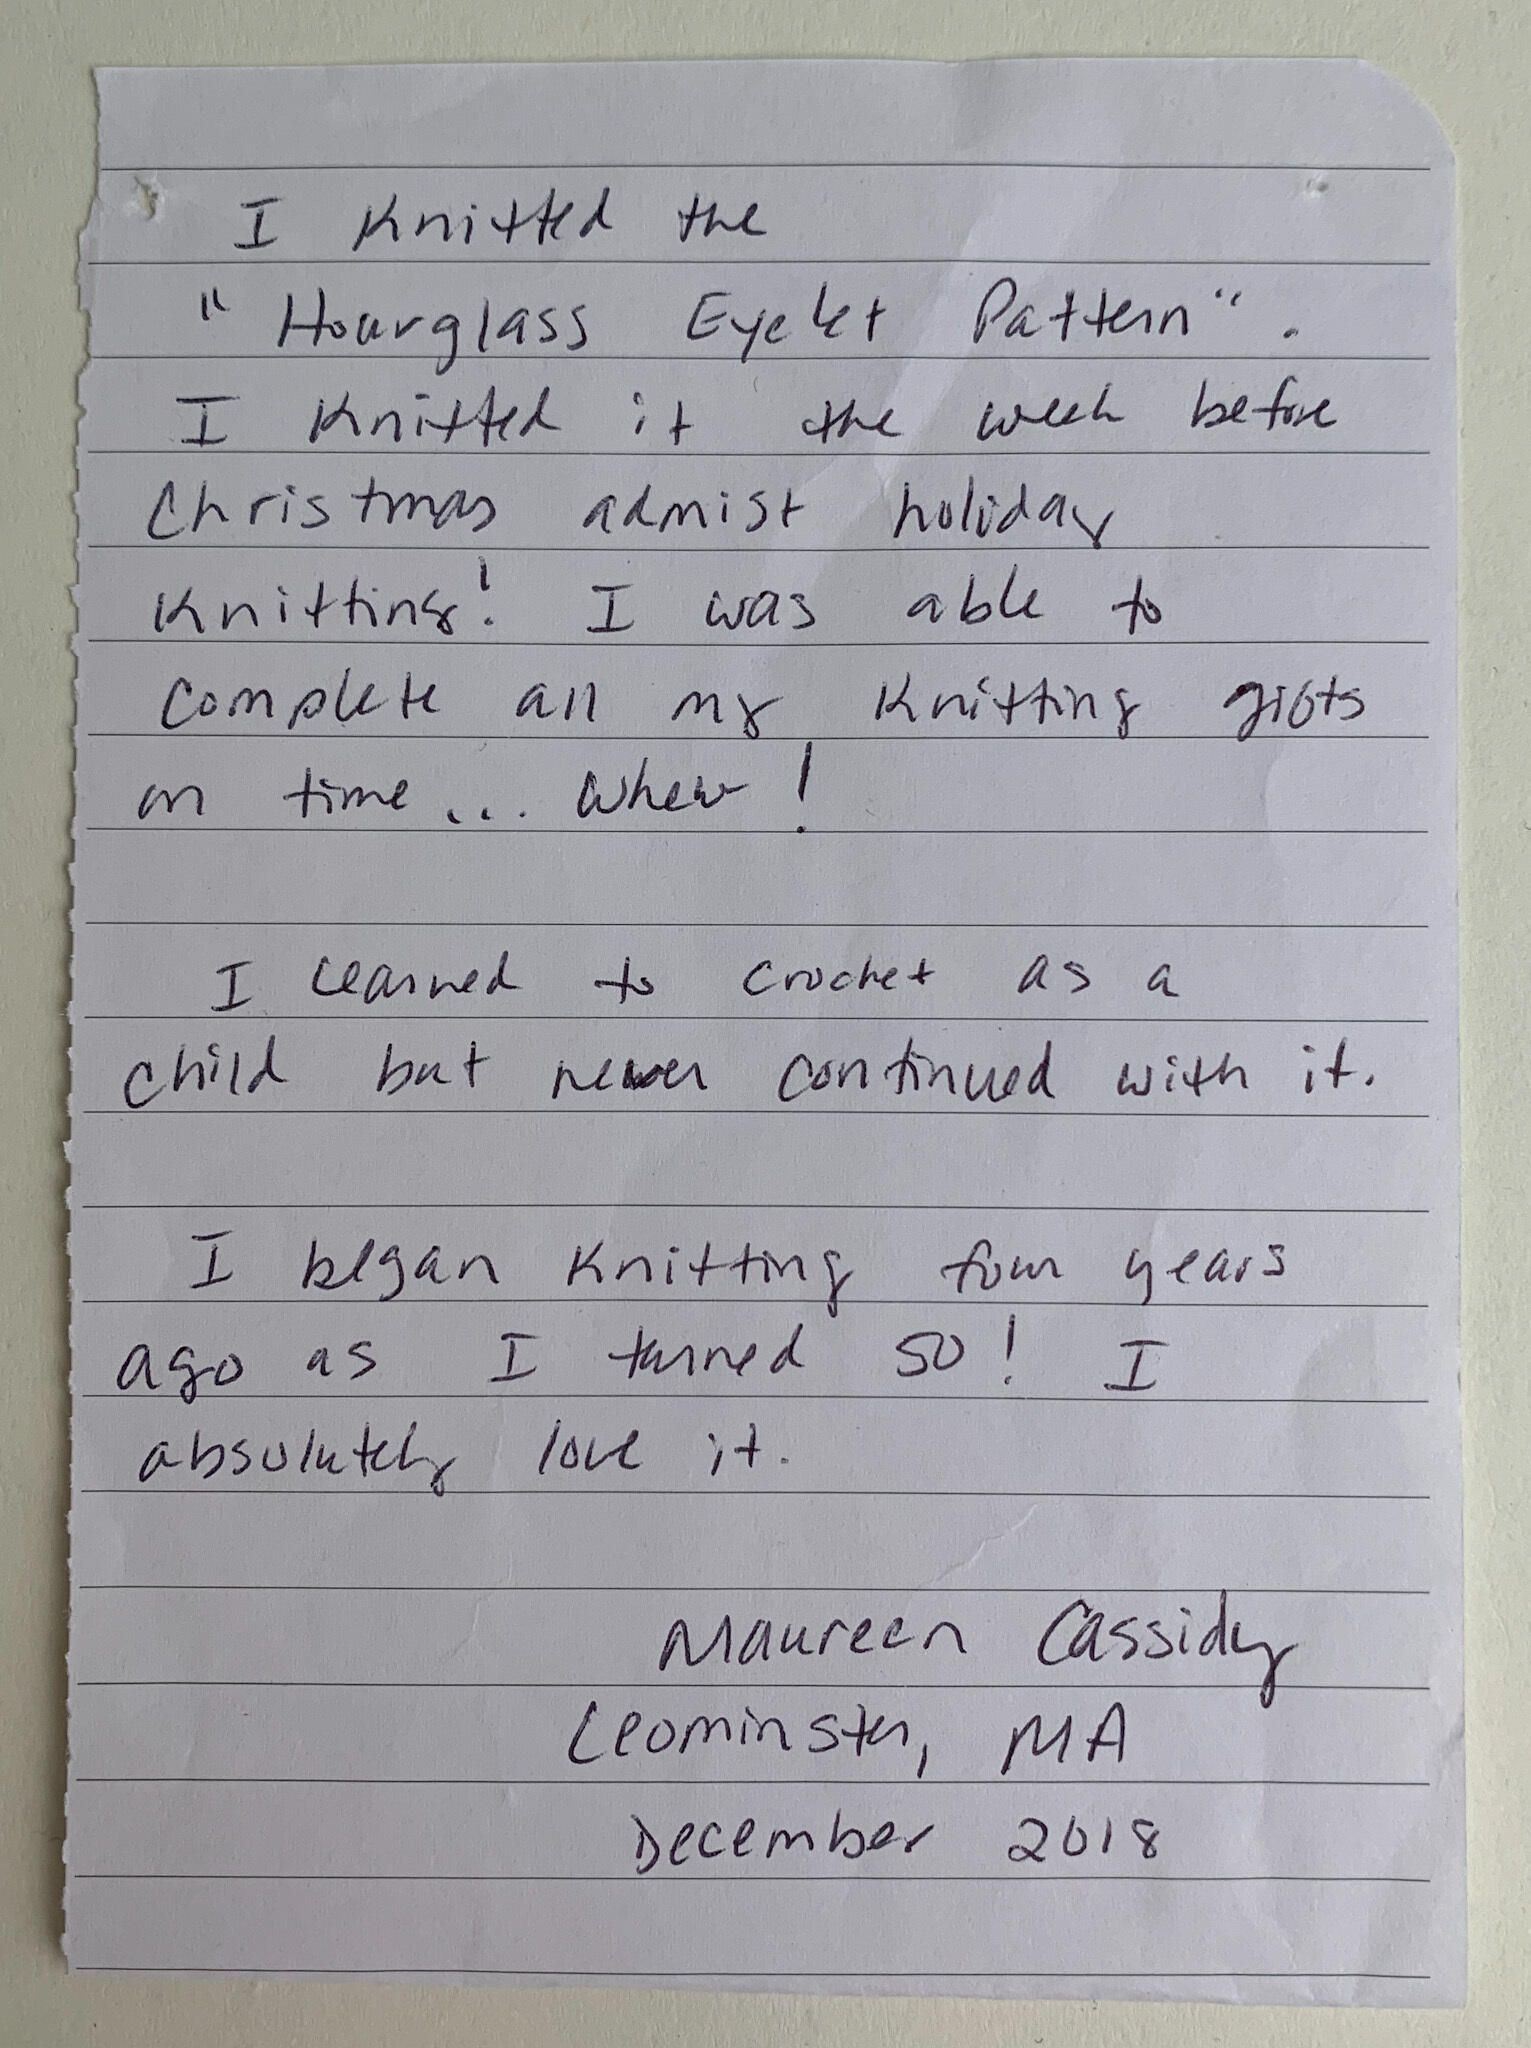 I knitted the
"Hourglass Eyelet Pattern".
I knitted it the week before
Christmas admist holiday
knitting! I was able to
complete all my knitting gifts
on time... whew!
I learned to crochet as a
child but never continued with it.
I began knitting four years
ago as I turned 50! I
absolutely love it.
Maureen Cassidy
Leominster, MA
December 2018